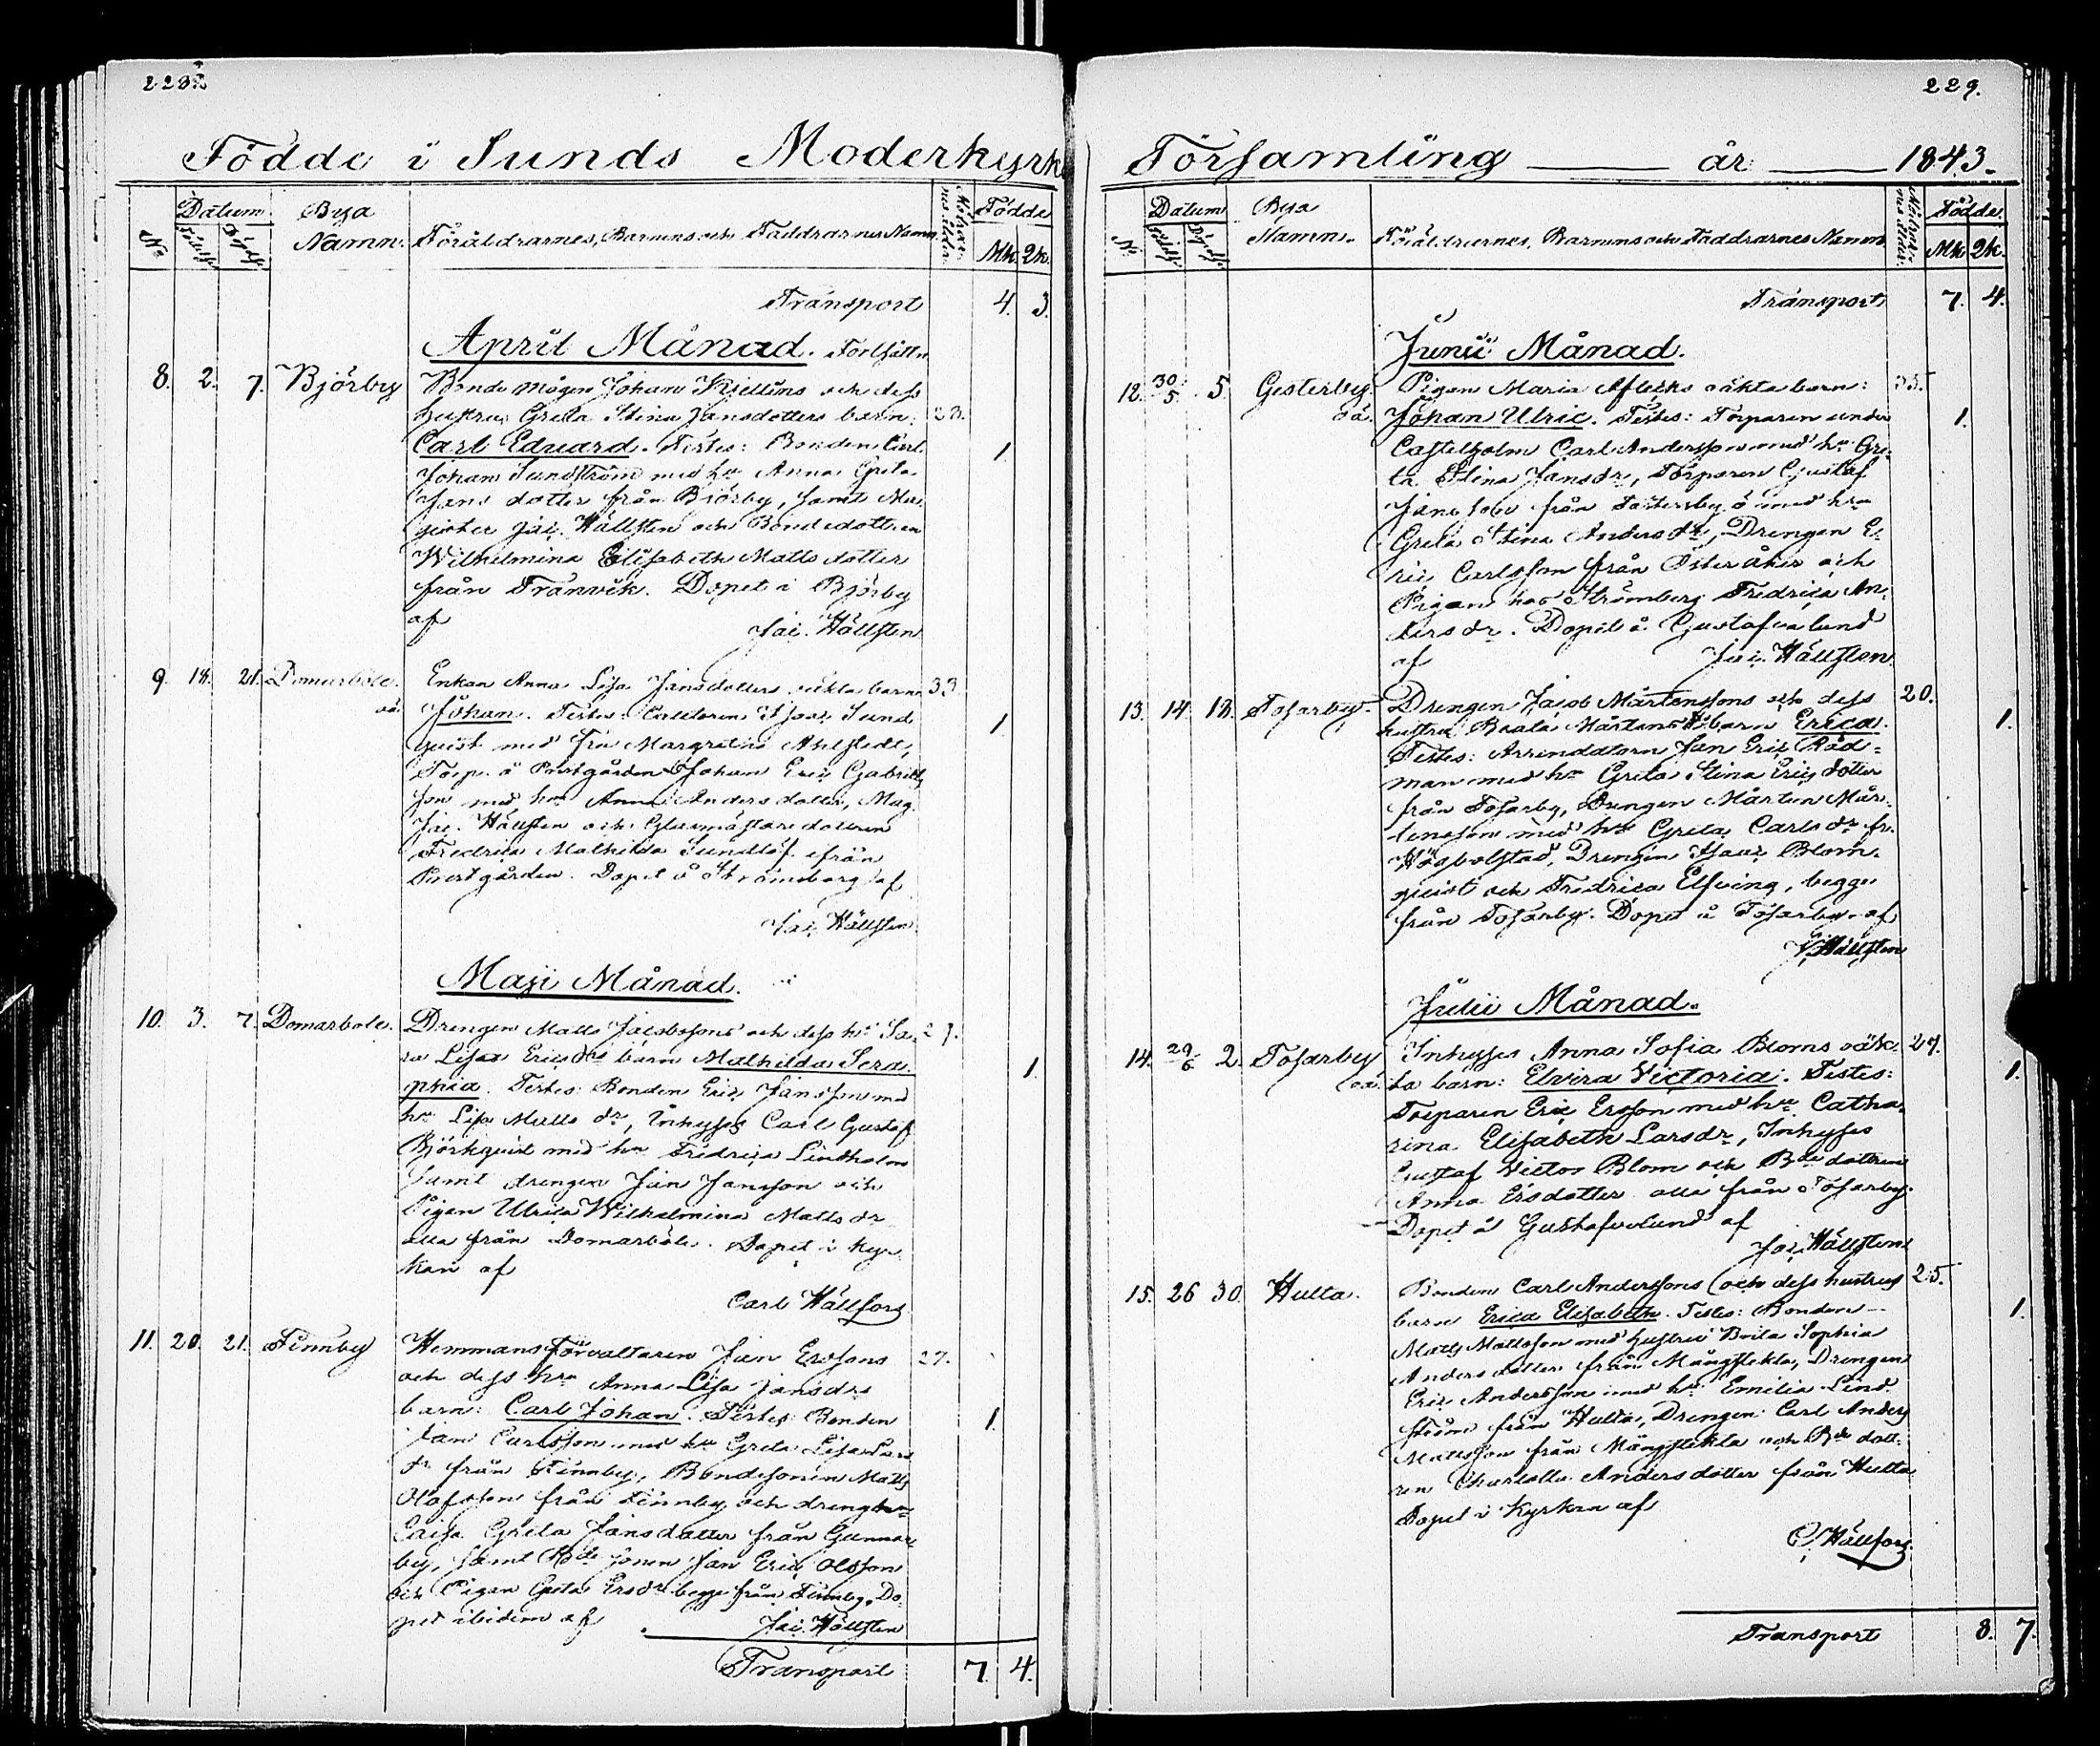 228.
Födde i Sunds Moderkyrko
No
Datum.
Födelse
Döpelse
Bya
Namn.
Föräldrarnes, Barnens och Faddrarnes Namn.
Moderns ålder.
Födde
Mk. Qk.
Transport 4. 3.
April Månad. Fortsättn.
8. 2. 7. Björby Bonde mågen Johan Kjellins och dess
hustru Greta Stina Jansdotters barn: 23.
Carl Eduard. Testes: Bonden Carl 1.
Johan Sundström med hu Anna Greta
Jans dotter från Björby, samt Ma-
gister Jac. Hällsten och Bondedottren
Wilhelmina Elisabeth Matts dotter
från Tranvik. Döpet i Björby
af
Jac. Hällsten
9. 18. 21. Domarböle. Enkan Anna Lisa Jansdotters oäkta barn 33
oä. Johan. Testes: Isaac Sund 1.
quist med fru Margretha Ahlstedt,
Torp. å Prestgården Johan Eric Gabriels
son med hu Anna Anders dotter, Mag.
Jac. Hällsten och Glasmästare dottren
Fredrica Mathilda Sundlöf ifrån
Prestgården. Döpet å Strömsberg af
Jac. Hällsten
Maji Månad.
10. 3. 7. Domarböle. Drengen Matts Jacobssons och dess hu Sa- 27.
ra Lisa Ericsdrs barn Mathilda Sera- 1.
phia. Testes: Bonden Eric Jansson med
hu Lisa Matts dr, Inhyses Carl Gustaf
Björkquist med hu Fredrica Lindholm
samt drengen Jan Jansson och
Pigan Ulrica Wilhelmina Matts dr
alla från Domarböle. Döpet i Kyr-
kan af
Carl Hällfors
11. 20. 21. Finnby Hemmans Förvaltaren Jan Erssons 27.
och dess hu Anna Lisa Jansdrs
barn: Carl Johan. Testes: Bonden 1.
Jan Carlsson med hu Greta Lisa Lars
dr från Finnby, Bondesonen Matts
Olofsson från Finnby och drenghu
Caisa Greta Jansdotter från Gunnar
by, samt Bde sonen Jan Eric Olsson
och Pigan Greta Ersdr begge från Finnby. Dö-
pet ibidem af
Jac. Hällsten
Transport 7. 4.
229.
Församling ——— år ——— 1843.
No
Datum
Födelse
Döpelse
Bya
Namn.
Föräldrarnes, Barnens och Faddrarnes Namn
Moderns ålder.
Födde.
Mk Qk.
Transport 7. 4.
Junii Månad.
12. 30/5 5 Gesterby. Pigan Maria Aflecks oäkta barn: 33.
oä. Johan Ulric. Testes: Torparen under 1.
Castelholm Carl Andersson med hu Gre-
ta Stina Jansdr, Torparen Gustaf
från med hu
Greta Stina Andersdr, Drengen E-
ric Carlsson från Österåker och
Pigan hos Strömberg Fredrica An-
dersdr. Döpet å Gustafvalund
af Jac. Hällsten
13. 14 18. Tosarby. Drengen Jacob Mårtenssons och dess 20.
hustru Beata Mårtensdrs barn Erica. 1.
Testes: Arrendatorn Jan Eric Råd-
man med hu Greta Stina Ericsdotter
från Tosarby, Drengen Mårten Mår-
tensson med hu Greta Carlsdr fr.
Högbolstad, Drengen Isaac Blom-
quist och Fredrica Elfving, begge
från Tosarby. Döpet i Tosarby af
J. Hällsten
Julii Månad.
14. 29/6 2. Tosarby Inhyses Anna Sofia Bloms oäk- 27.
oä. ta barn: Elvira Victoria. Testes: 1.
Torparen Eric Ersson med hu Catha-
rina Elisabeth Larsdr, Inhyses
Gustaf Victor Blom och Bde dottren
Anna Ersdotter alla från Tosarby.
Döpet å Gustafvalund af
Jac. Hällsten
15. 26 30. Hulta. Bonden Carl Anderssons och dess hustrus 25.
barn Erica Elisabeth. Testes: Bonden 1.
Matts Mattsson med hustru Brita Sophia
Anders dotter från Mångstekta, Drengen
Eric Andersson med hu Emilia Lind-
ström från Hulta, Drengen Carl Anders
Mattsson från Mångstekta och Bde dott-
ren Charlotta Anders dotter från Hulta
Döpet i Kyrkan af
C. Hällfors
Transport 8. 7.